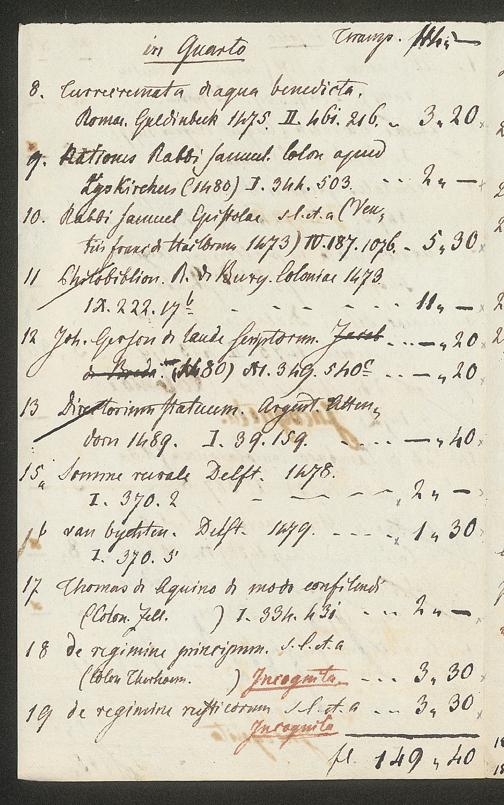 in Quarto Transp.
8. Turrecremata d aqua benedicta.
Romae. Guldinbeck 1475. II. 461. 216. .. 3„20
9. Rationes Rabbi Samuel. Colon apud
Lyskirchen (1480) I. 344. 503. -- 2„—
10. Rabbi Samuel Epistolae s.l.et.a (Ven„
tiis franc: d Hailbrun 1473) IV. 187. 1076. - 5„30
11 Philobiblion. R. di Bury. Coloniae 1473.
IX. 222. 17b - - - - 11„—
12 Joh. Gerson di laude Scriptorum. ... —„20
(1480) XI. 349. 540c - — „20
13 Directorium Statuum. Argent. Atten„
dorn 1489. I. 39. 159. ---- —„40
15„ Somme rurale Delft. 1478.
I. 370. 2 - - - - 2„—
16 van bychten. Delft. 1479. ---- 1„30
I. 370. 5
17 Thomas di Aquino di modo confitendi
(Colon. Zell. ) I. 334. 430 --- 2„—
18 de regimine principum. s.l.et.a
(Colon Therhorn. ) Incognita --- 3„30
19 de regimine rusticorum s.l.et.a --- 3„30
Incognita
fl. 149„40